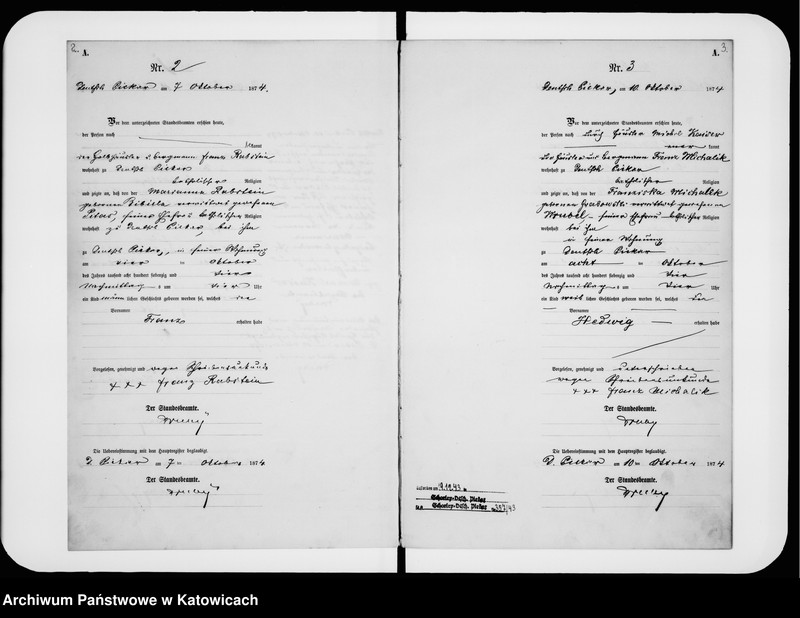 2.
A.
Nr. 2
Deutsch Piekar am 7 Oktober 1874.
Vor dem unterzeichneten Standesbeamten erschien heute,
der Person nach
kannt
Bergmann Franz Rabstein
wohnhaft zu Deutsch Piekar
katholischer Religion
und zeigte an, daß von der Marianna Rabstein
geborenen
seiner Ehefrau katholischer Religion
wohnhaft zu Deutsch Piekar, bei ihm
zu Deutsch Piekar, in seiner Wohnung
am vier ten Oktober
des Jahres tausend acht hundert siebenzig und vier
Nachmittag s um vier Uhr
ein Kind männ lichen Geschlechts geboren worden sei, welches den
Vornamen
Franz erhalten habe
Vorgelesen, genehmigt und wegen
+++ Franz Rabstein
Der Standesbeamte.
Die Uebereinstimmung mit dem Hauptregister beglaubigt.
D. Piekar am 7 ten Oktober 1874.
Der Standesbeamte.
3.
A.
Nr. 3
Deutsch Piekar, am 10 Oktober 1874
Vor dem unterzeichneten Standesbeamten erschien heute,
der Person nach durch Häusler Michel Kaiser
kannt
der Häusler und Bergmann Franz Michalik
wohnhaft zu Deutsch Piekar
katholischer Religion
und zeigte an, daß von der Franziska Michalik
geborenen
seiner Ehefrau katholischer Religion
wohnhaft bei ihm
in seiner Wohnung
zu Deutsch Piekar
am acht ten Oktober
des Jahres tausend acht hundert siebenzig und vier
Nachmittag s um vier Uhr
ein Kind weib lichen Geschlechts geboren worden sei, welches den
Vornamen
Hedwig erhalten habe
Vorgelesen, genehmigt und unterschrieben
wegen Schreibensunkunde
+++ Franz Michalik
Der Standesbeamte.
Die Uebereinstimmung mit dem Hauptregister beglaubigt.
D. Piekar am 10 ten Oktober 1874
Der Standesbeamte.
Scharley-Dtsch. Piekar
Scharley-Dtsch. Piekar
Archiwum Państwowe w Katowicach